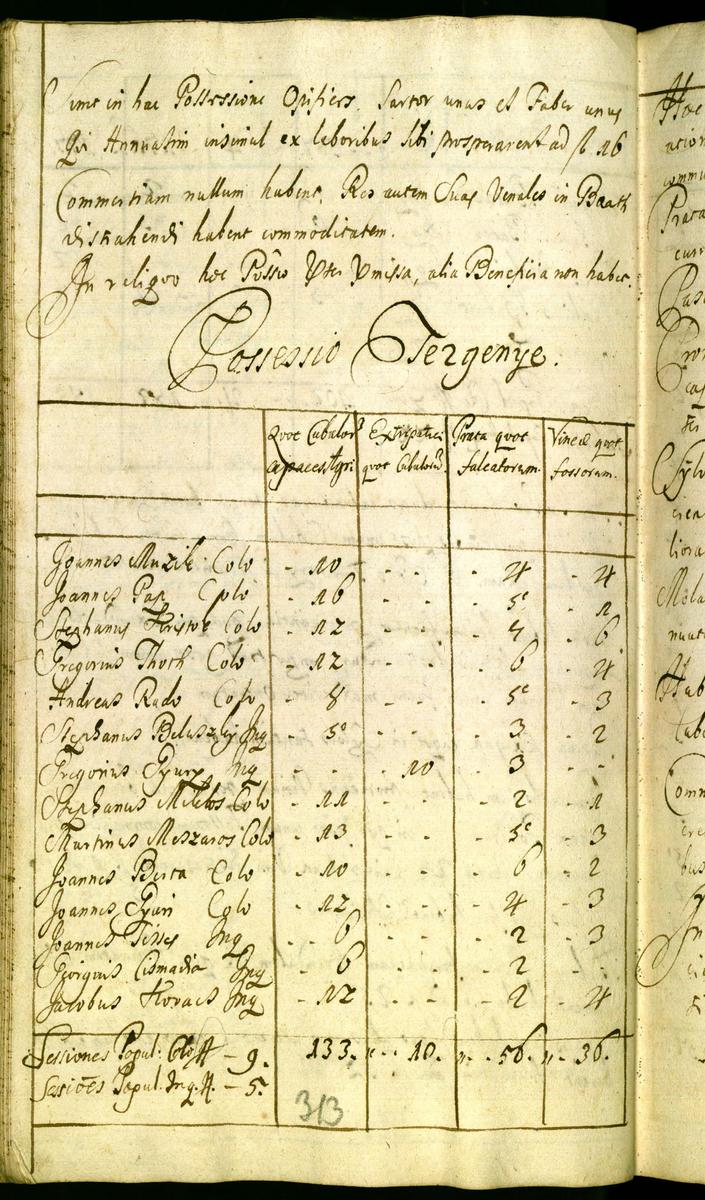 Sunt in hac Possessione Opifices, Sartor unus et Faber unus
Qvi Annuatim insimul ex laboribus sibi prosperarent ad f 16
Commertium nullum habent, Res autem Suas Venales in Baath
distrahendi habent commoditatem.
In reliqvo hoc Possio pter pmissa, alia Beneficia non habet.
Possessio Tergenye.
Qvot Cubulor Capaces Agri Extirpatitii quot Cubulor. Prata quot falcatorum. Vineæ quot fossorum.
Joannes Muzik Colo - 10 - - - 4 - 4
Joannes Pap Colo - 16 - - - 5 - 1
Stephanus Kristof Colo - 12 - - - 4 - 6
Gregorius Thoth Colo - 12 - - - 6 - 4
Andreas Rado Colo - 8 - - - 5 - 3
Stephanus Beluszky Inq - 5 - - - 3 - 2
Gregorius Gyury Inq - - - 10 - 3 - -
Stephanus Miklos Colo - 11 - - - 2 - 1
Martinus Meszaros Colo - 13 - - - 5 - 3
Joannes Berta Colo - 10 - - - 6 - 2
Joannes Gyuri Colo - 12 - - - 4 - 3
Joannes Inq - 6 - - - 2 - 3
Georgius Cismadia Inq - 6 - - - 2 - -
Jacobus Kovacs Inq - 12 - - - 2 - 4
Sessiones Popul: Colo - 9. 133. - 10. - 56. - 36.
Sessiões Popul: Inq. - 5.
313